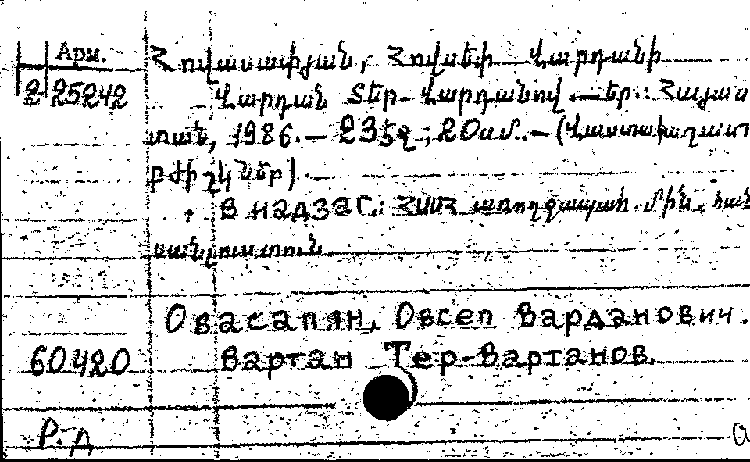 Арм.
2 25242
Հովասափյան, Հովսեփ Վարդանի
Վարդան Տեր-Վարդանով.—Եր.: Հայաս
տան, 1986.— 235 էջ; 20 սմ.— (Վաստակաշատ
բժիշկներ).
В надзаг.: ՀՍՍՀ առողջապահ. մին.,
Овасапян, Овсеп Варданович.
60420 Вартан Тер-Вартанов.
Р. Д